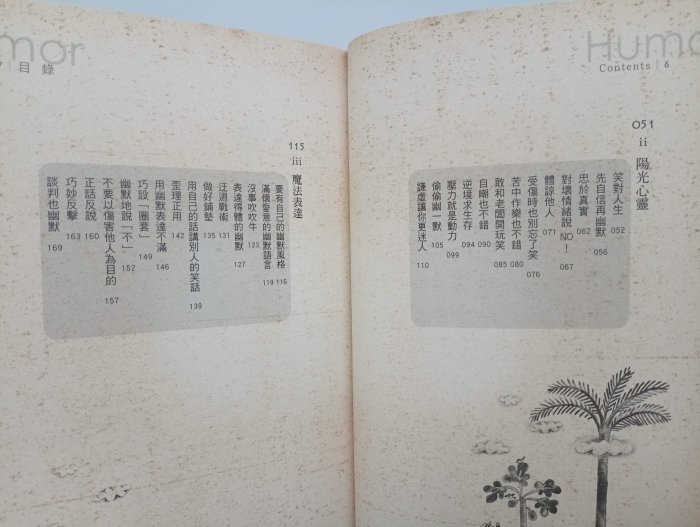 Humo
Contents | 6
051
ii 陽光心靈
笑對人生 052
先自信再幽默 056
忠於真實 062
對壞情緒說NO！ 067
體諒他人 071
受傷時也別忘了笑 076
苦中作樂也不錯 080
敢和老闆開玩笑 085
自嘲也不錯 090
逆境求生存 094
壓力就是動力 099
偷偷幽一默 105
謙虛讓你更迷人 110
mor
7 目錄
115
iii 魔法表達
要有自己的幽默風格 116
滿懷愛意的幽默語言 119
沒事吹吹牛 123
表達得體的幽默 127
迂迴戰術 131
做好鋪墊 135
用自己的話講別人的笑話 139
歪理正用 142
用幽默表達不滿 146
巧設「圈套」 149
幽默地說「不」 152
不要以傷害他人為目的 157
正話反說 160
巧妙反擊 163
談判也幽默 169